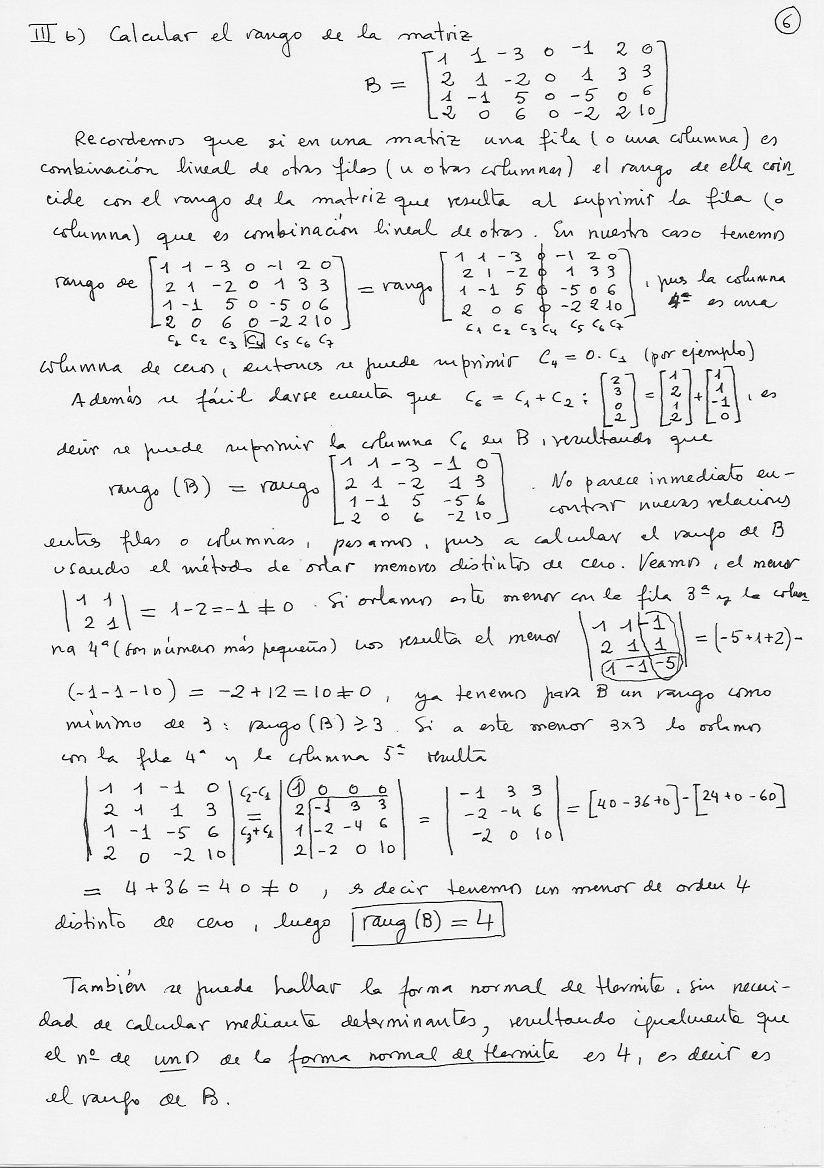 6
III b) Calcular el rango de la matriz
B = [1 1 -3 0 -1 2 0
2 1 -2 0 1 3 3
1 -1 5 0 -5 0 6
2 0 6 0 -2 2 10]
Recordemos que si en una matriz una fila (o una columna) es
combinación lineal de otras filas (u otras columnas) el rango de ella coin-
cide con el rango de la matriz que resulta al suprimir la fila (o
columna) que es combinación lineal de otras. En nuestro caso tenemos
rango de [1 1 -3 0 -1 2 0
2 1 -2 0 1 3 3
1 -1 5 0 -5 0 6
2 0 6 0 -2 2 10]
C1 C2 C3 C4 C5 C6 C7
= rango [1 1 -3 0 -1 2 0
2 1 -2 0 1 3 3
1 -1 5 0 -5 0 6
2 0 6 0 -2 2 10]
C1 C2 C3 C4 C5 C6 C7
, pues la columna
4ª es una
columna de ceros, entonces se puede suprimir C4 = 0·C1 (por ejemplo)
Además es fácil darse cuenta que C6 = C1 + C2 : [2 3 0 2] = [1 2 1 2] + [1 1 -1 0], es
decir se puede suprimir la columna C6 en B, resultando que
rango (B) = rango [1 1 -3 -1 0
2 1 -2 1 3
1 -1 5 -5 6
2 0 6 -2 10]
. No parece inmediato en-
contrar nuevas relaciones
entre filas o columnas, pasamos, pues a calcular el rango de B
usando el método de orlar menores distintos de cero. Veamos, el menor
|1 1
2 1| = 1-2 = -1 ≠ 0. Si orlamos este menor con la fila 3ª y la colum
na 4ª (son números más pequeños) nos resulta el menor |1 1 -1
2 1 1
1 -1 -5| = (-5+1+2)-
(-1-1-10) = -2+12 = 10 ≠ 0, ya tenemos para B un rango como
mínimo de 3 : rango (B) ≥ 3. Si a este menor 3x3 lo orlamos
con la fila 4ª y la columna 5ª resulta
|1 1 -1 0
2 1 1 3
1 -1 -5 6
2 0 -2 10|
C2-C1
=
C3+C1
|1 0 0 0
2 -1 3 3
1 -2 -4 6
2 -2 0 10|
= |-1 3 3
-2 -4 6
-2 0 10| = [40-36+0]-[24+0-60]
= 4+36 = 40 ≠ 0, es decir tenemos un menor de orden 4
distinto de cero, luego rang (B) = 4
También se puede hallar la forma normal de Hermite, sin necesi-
dad de calcular mediante determinantes, resultando igualmente que
el nº de unos de la forma normal de Hermite es 4, es decir es
el rango de B.